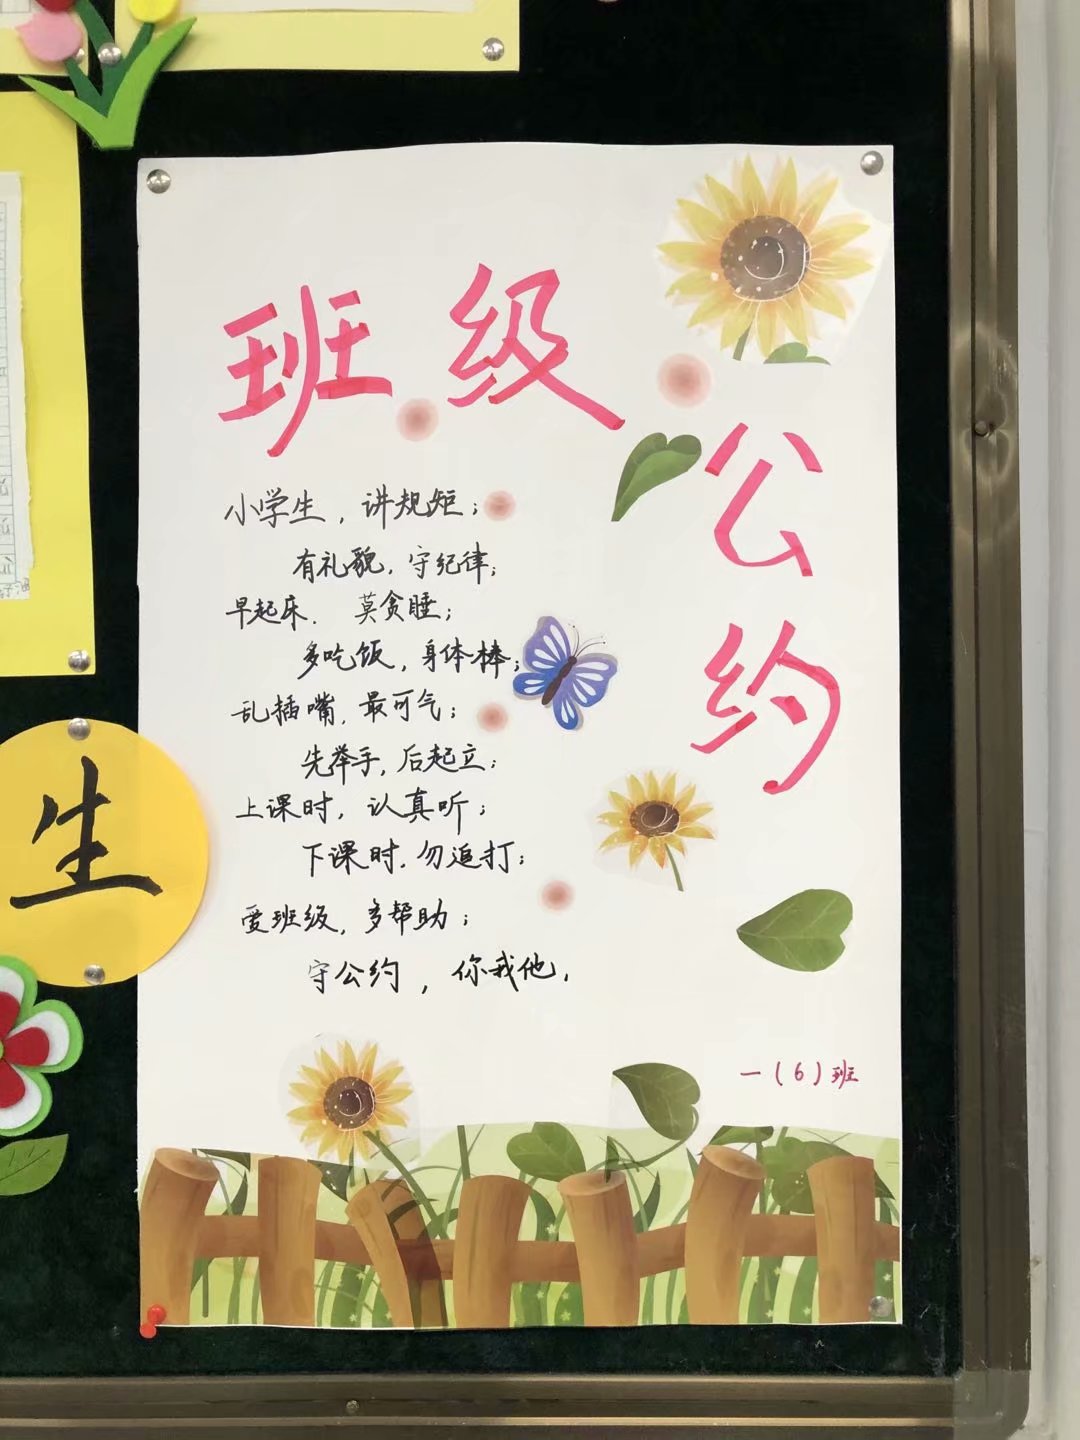 班级公约
小学生，讲规矩；
有礼貌，守纪律；
早起床，莫贪睡；
多吃饭，身体棒；
乱插嘴，最可气；
先举手，后起立；
上课时，认真听；
下课时，勿追打；
爱班级，多帮助；
守公约，你我他。
一(6)班
生